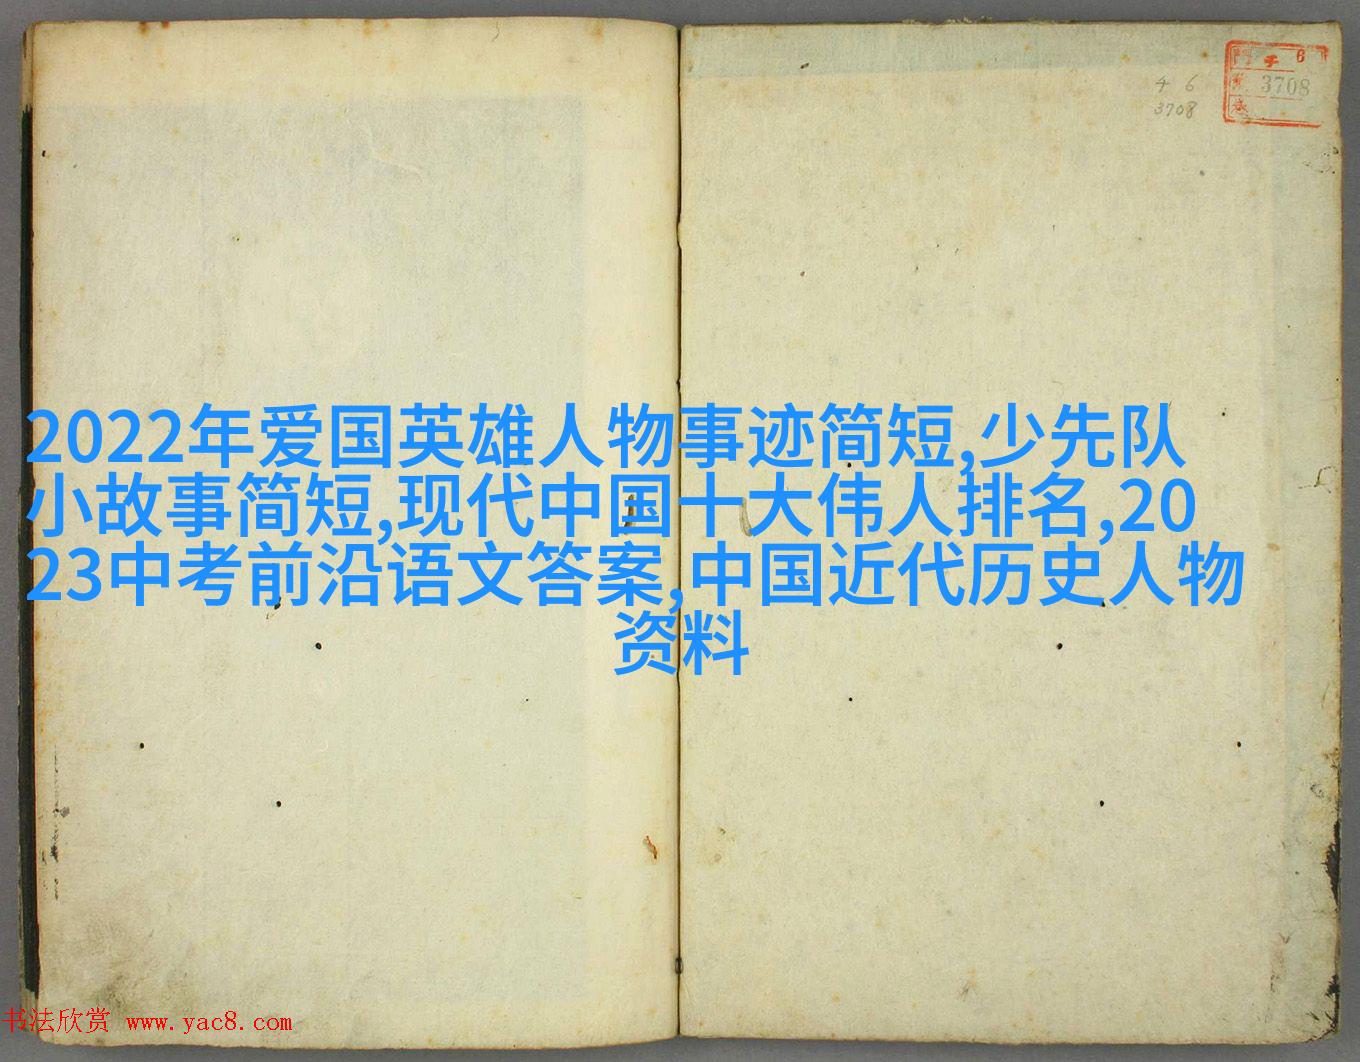 2022年爱国英雄人物事迹简短,少先队
小故事简短,现代中国十大伟人排名,20
23中考前沿语文答案,中国近代历史人物
资料
4 6
3708
6
3708
书法欣赏 www.yac8.com